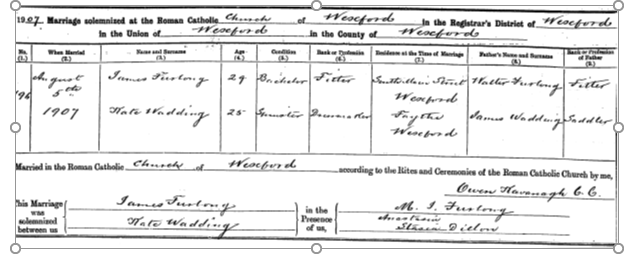 1907. Marriage solemnized at the Roman Catholic Church of Wexford in the Registrar's District of Wexford
in the Union of Wexford in the County of Wexford
No. (1.) When Married (2.) Name and Surname (3.) Age (4.) Condition (5.) Rank or Profession (6.) Residence at the Time of Marriage (7.) Father's Name and Surname (8.) Rank or Profession of Father (9.)
August James Furlong 29 Bachelor Fitter Street Walter Furlong Fitter
'96 5th Wexford
1907 Kate Wadding 25 Spinster Dressmaker Faythe James Wadding Saddler
Wexford
Married in the Roman Catholic Church of Wexford according to the Rites and Ceremonies of the Roman Catholic Church by me,
Owen Kavanagh C.C.
his Marriage James Furlong in the M. J. Furlong
was solemnized Presence Anastasia
between us Kate Wadding of us, Stasia Dillon